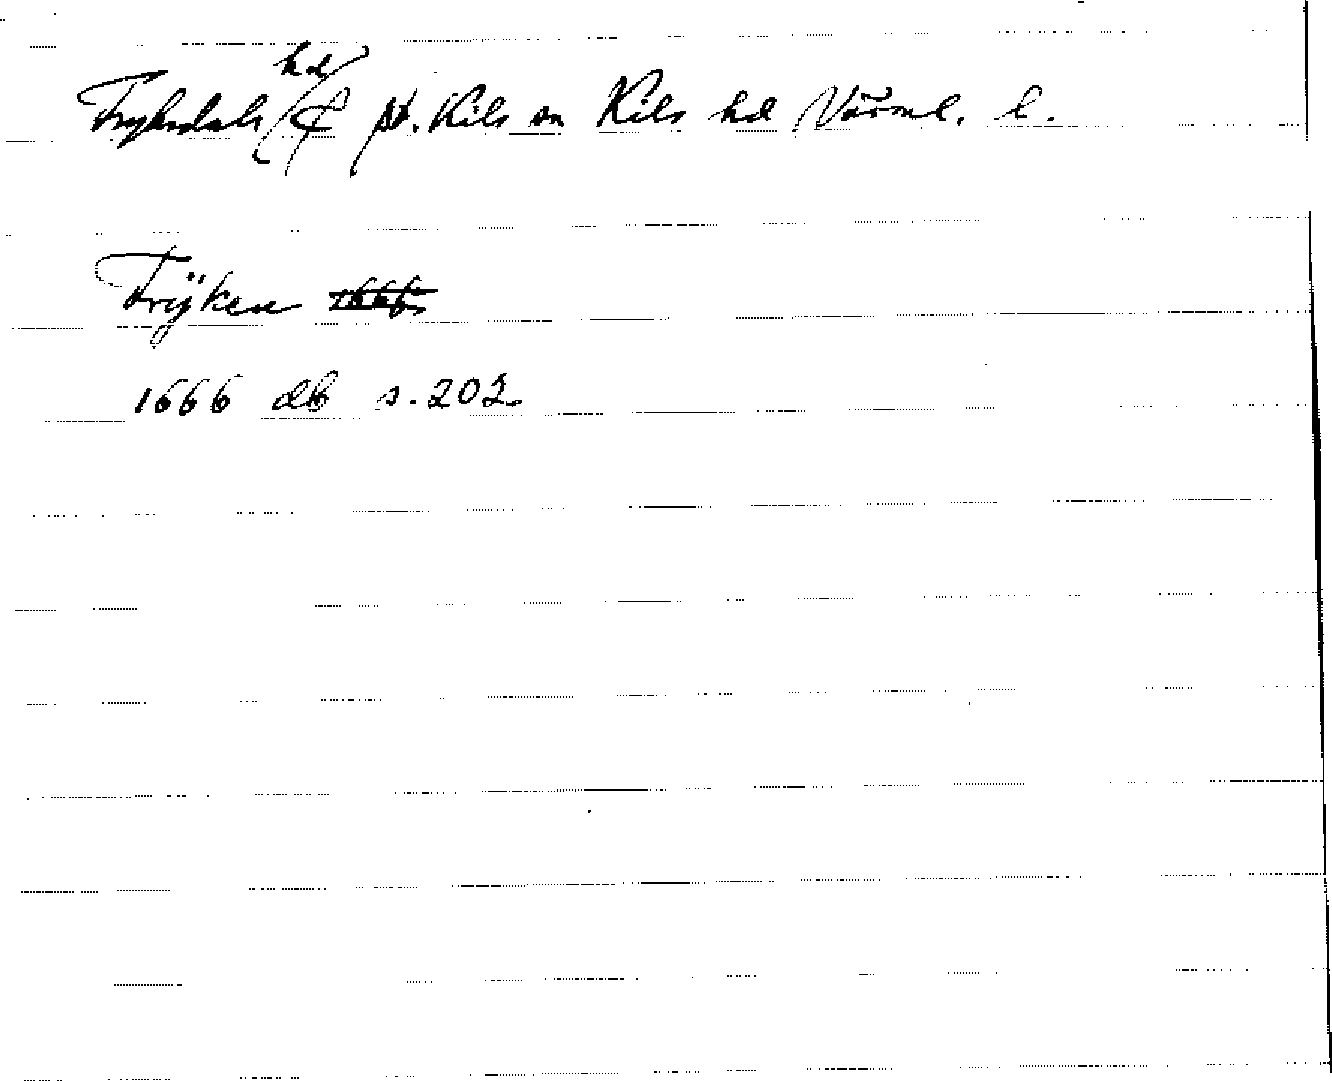 Fryksdals hd / st. Kils sn Kils hd Värml. l.
Frÿken 1666
1666 db s. 202